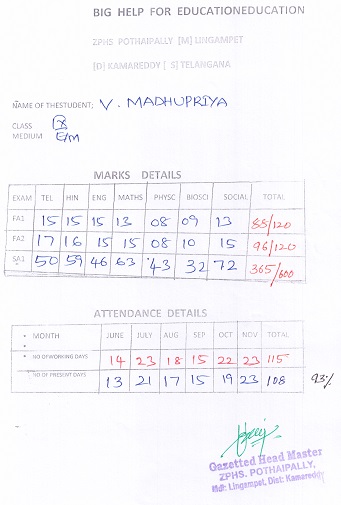 BIG HELP FOR EDUCATIONEDUCATION
ZPHS POTHAIPALLY [M] LINGAMPET
[D] KAMAREDDY [ S] TELANGANA
NAME OF THESTUDENT; V. MADHUPRIYA
CLASS IX
MEDIUM E/m
MARKS DETAILS
EXAM TEL HIN ENG MATHS PHYSC BIOSCI SOCIAL TOTAL
FA1 15 15 15 13 08 09 13 88/120
FA2 17 16 15 15 08 10 15 96/120
SA1 50 59 46 63 43 32 72 365/600
ATTENDANCE DETAILS
• MONTH JUNE JULY AUG SEP OCT NOV TOTAL
• NO OFWORKING DAYS 14 23 18 15 22 23 115
NO OF PRESENT DAYS 13 21 17 15 19 23 108 93%
Gazetted Head Master
ZPHS. POTHAIPALLY,
Mdl: Lingampet, Dist: Kamareddy